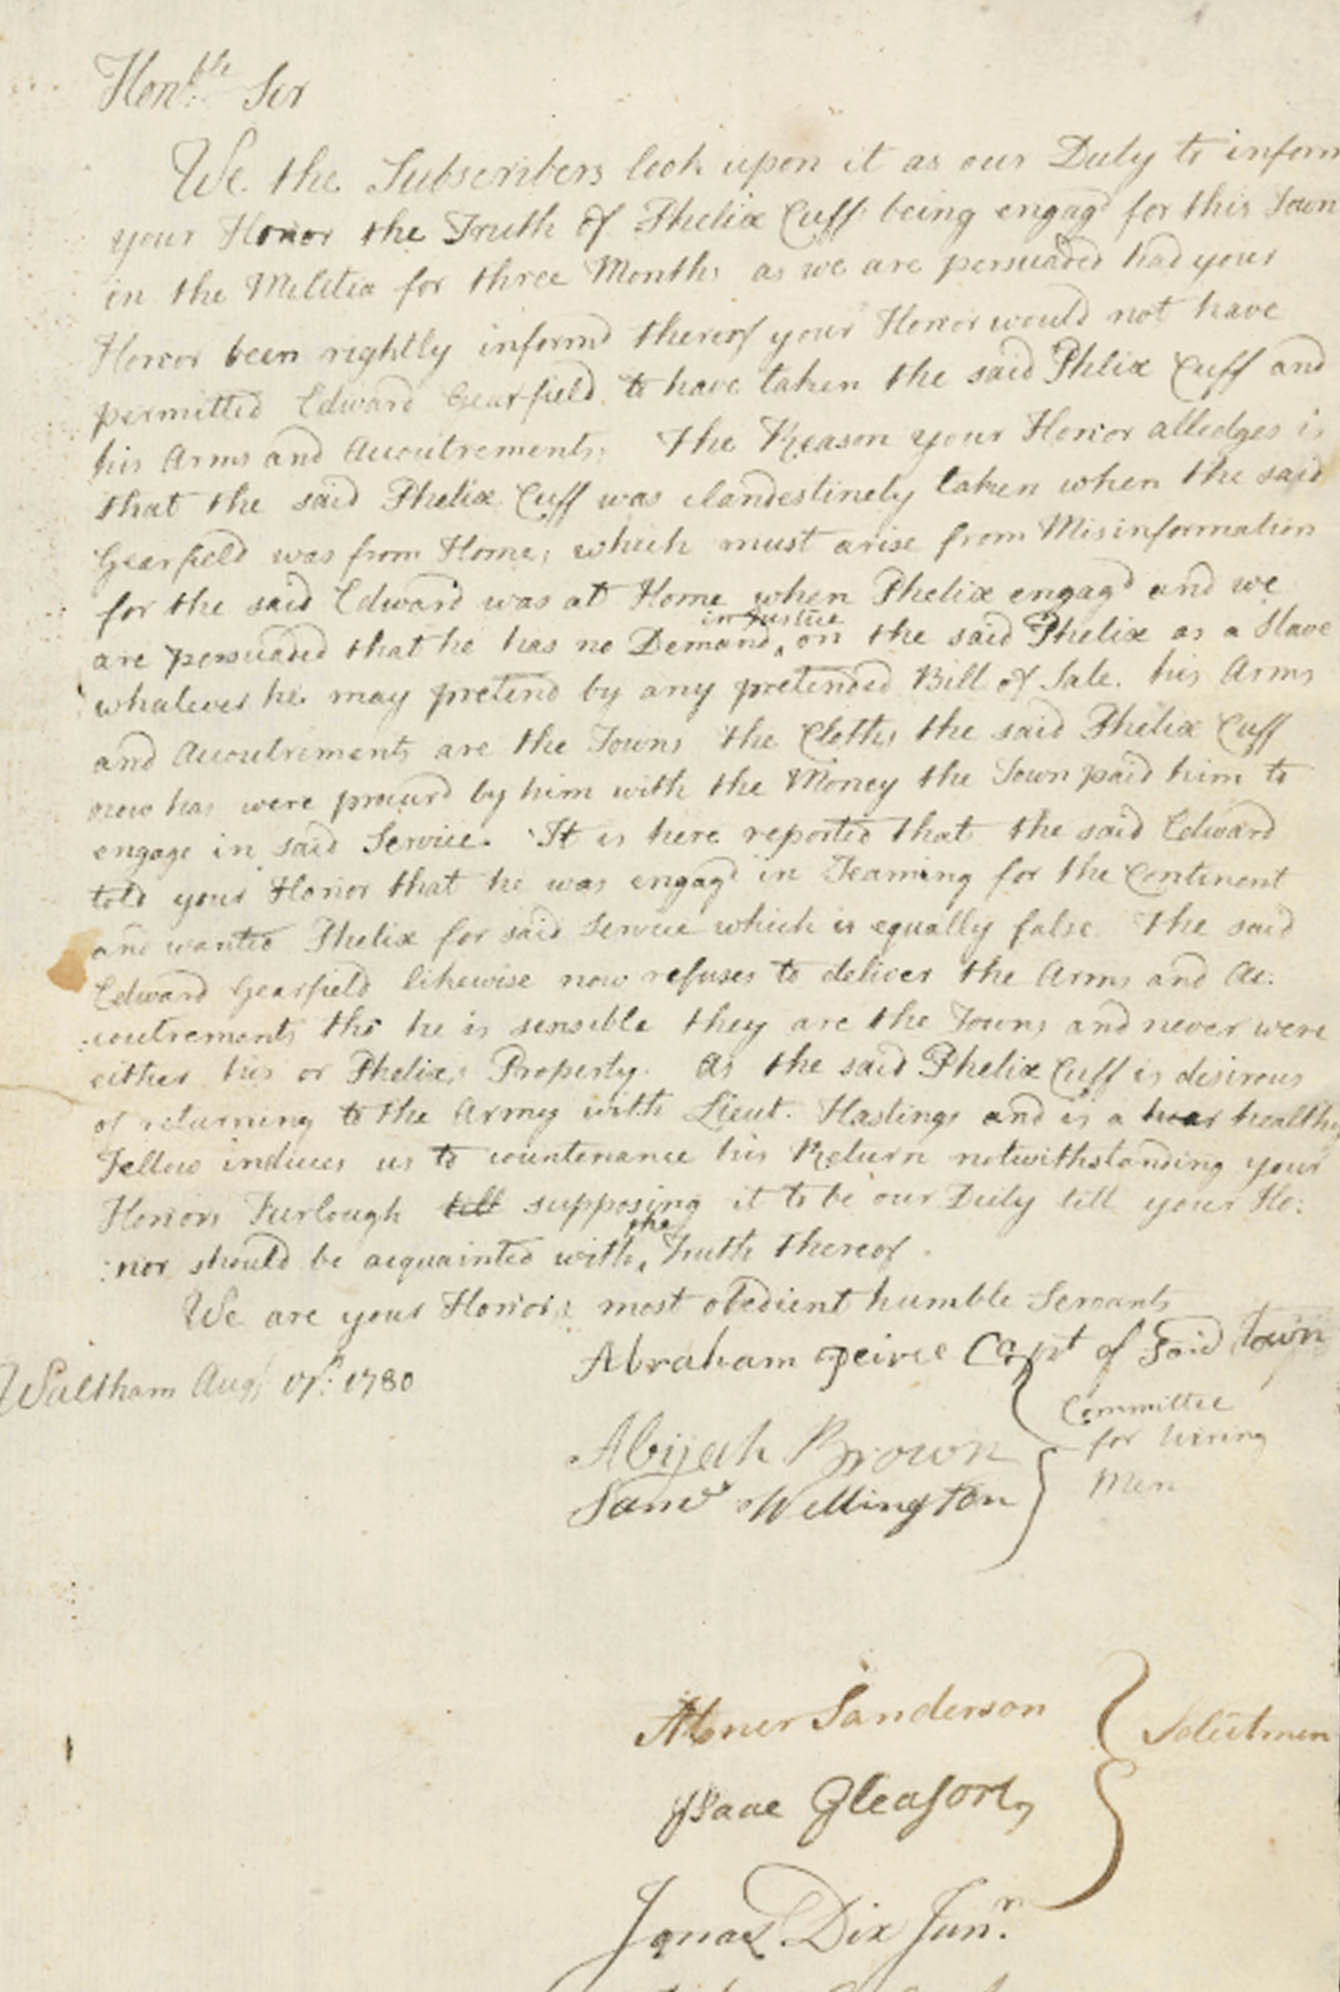 Hon.ble Ser
We the Subscribers look upon it as our Duty to inform
your Honor the Truth of Phelix Cuff being engagd for this Town
in the Militia for three Months as we are persuaded had your
Honor been rightly informd thereof your Honor would not have
permitted Edward Gearfield to have taken the said Phelix Cuff and
his Arms and Accoutrements. The Reason your Honor alledges is
that the said Phelix Cuff was clandestinely taken when the said
Gearfield was from Home; which must arise from Misinformation
for the said Edward was at Home when Phelix engagd and we
are persuaded that he has no Demand in Justice on the said Phelix as a Slave
whatever he may pretend by any pretended Bill of Sale. his Arms
and Accoutrements are the Towns the Cloths the said Phelix Cuff
now has were procurd by him with the Money the Town paid him to
engage in said Service. It is here reported that the said Edward
told your Honor that he was engagd in Teaming for the Continent
and wanted Phelix for said Service which is equally false. The said
Edward Gearfield likewise now refuses to deliver the Arms and Ac:
:coutrements tho he is sensible they are the Towns and never were
either his or Phelix,s Property. As the said Phelix Cuff is desirous
of returning to the Army with Lieut. Hastings and is a healthy
Fellow induces us to countenance his Return notwithstanding your
Honors Furlough till supposing it to be our Duty till your Ho:
:nor should be acquainted with the Truth thereof.
We are your Honors most obedient humble Servants
Abraham Peirce Capt of Said Town
Waltham Augt 17th: 1780
Abijah Brown
Saml Wellington
Committee
for hiring
Men
Abner Sanderson
Isaac Gleason
Selectmen
Jonas Dix Junr.